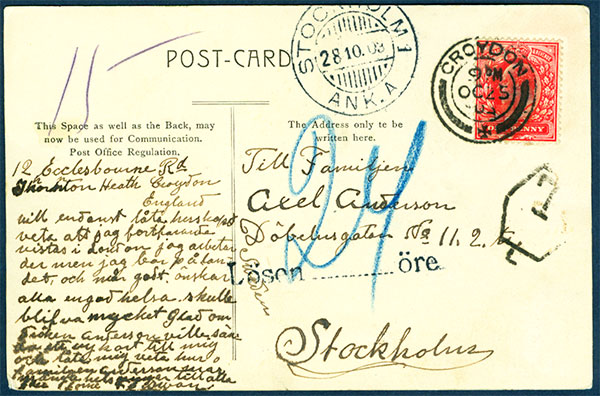 15
POST-CARD
STOCKHOLM 1
28.10.03
ANK. A
CROYDON
OC 25
PENNY
T
This Space as well as the Back, may
now be used for Communication.
Post Office Regulation.
The Address only to be
written here.
12 Ecclesbourne Rd
Thornton Heath Croydon
England
vill endast låta herskapet
veta att jag fortfarande
vistas i London jag arbetar
der men jag bor på lan
det, och mår godt. önskar
alla en god helsa. skulle
blifva mycket glad om
fröken Anderson ville säna
ett vykort till mig
och låta mig veta hur
familjen Anderson mår
till alla
Till Familjen
Axel Anderson
Döbelnsgatan No 11. 2 tr
Sweden
Stockholm
Lösen
24
öre